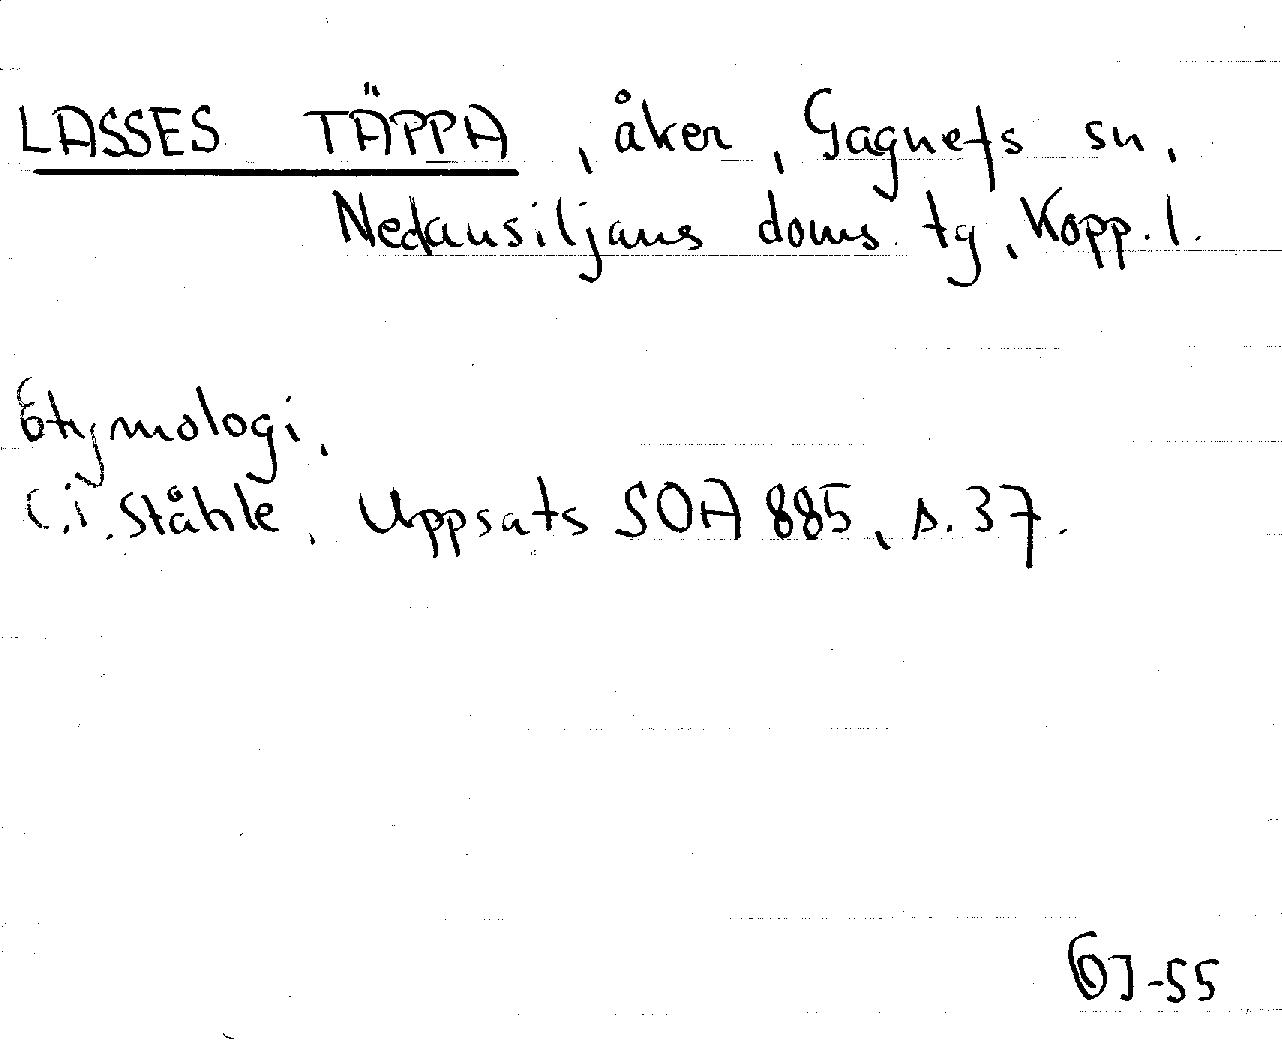 LASSES TÄPPA, åker, Gagnefs sn,
Nedansiljans doms. tg, Kopp. l.
Etymologi.
C.i. Ståhle, Uppsats SOA 885, s. 37.
-55